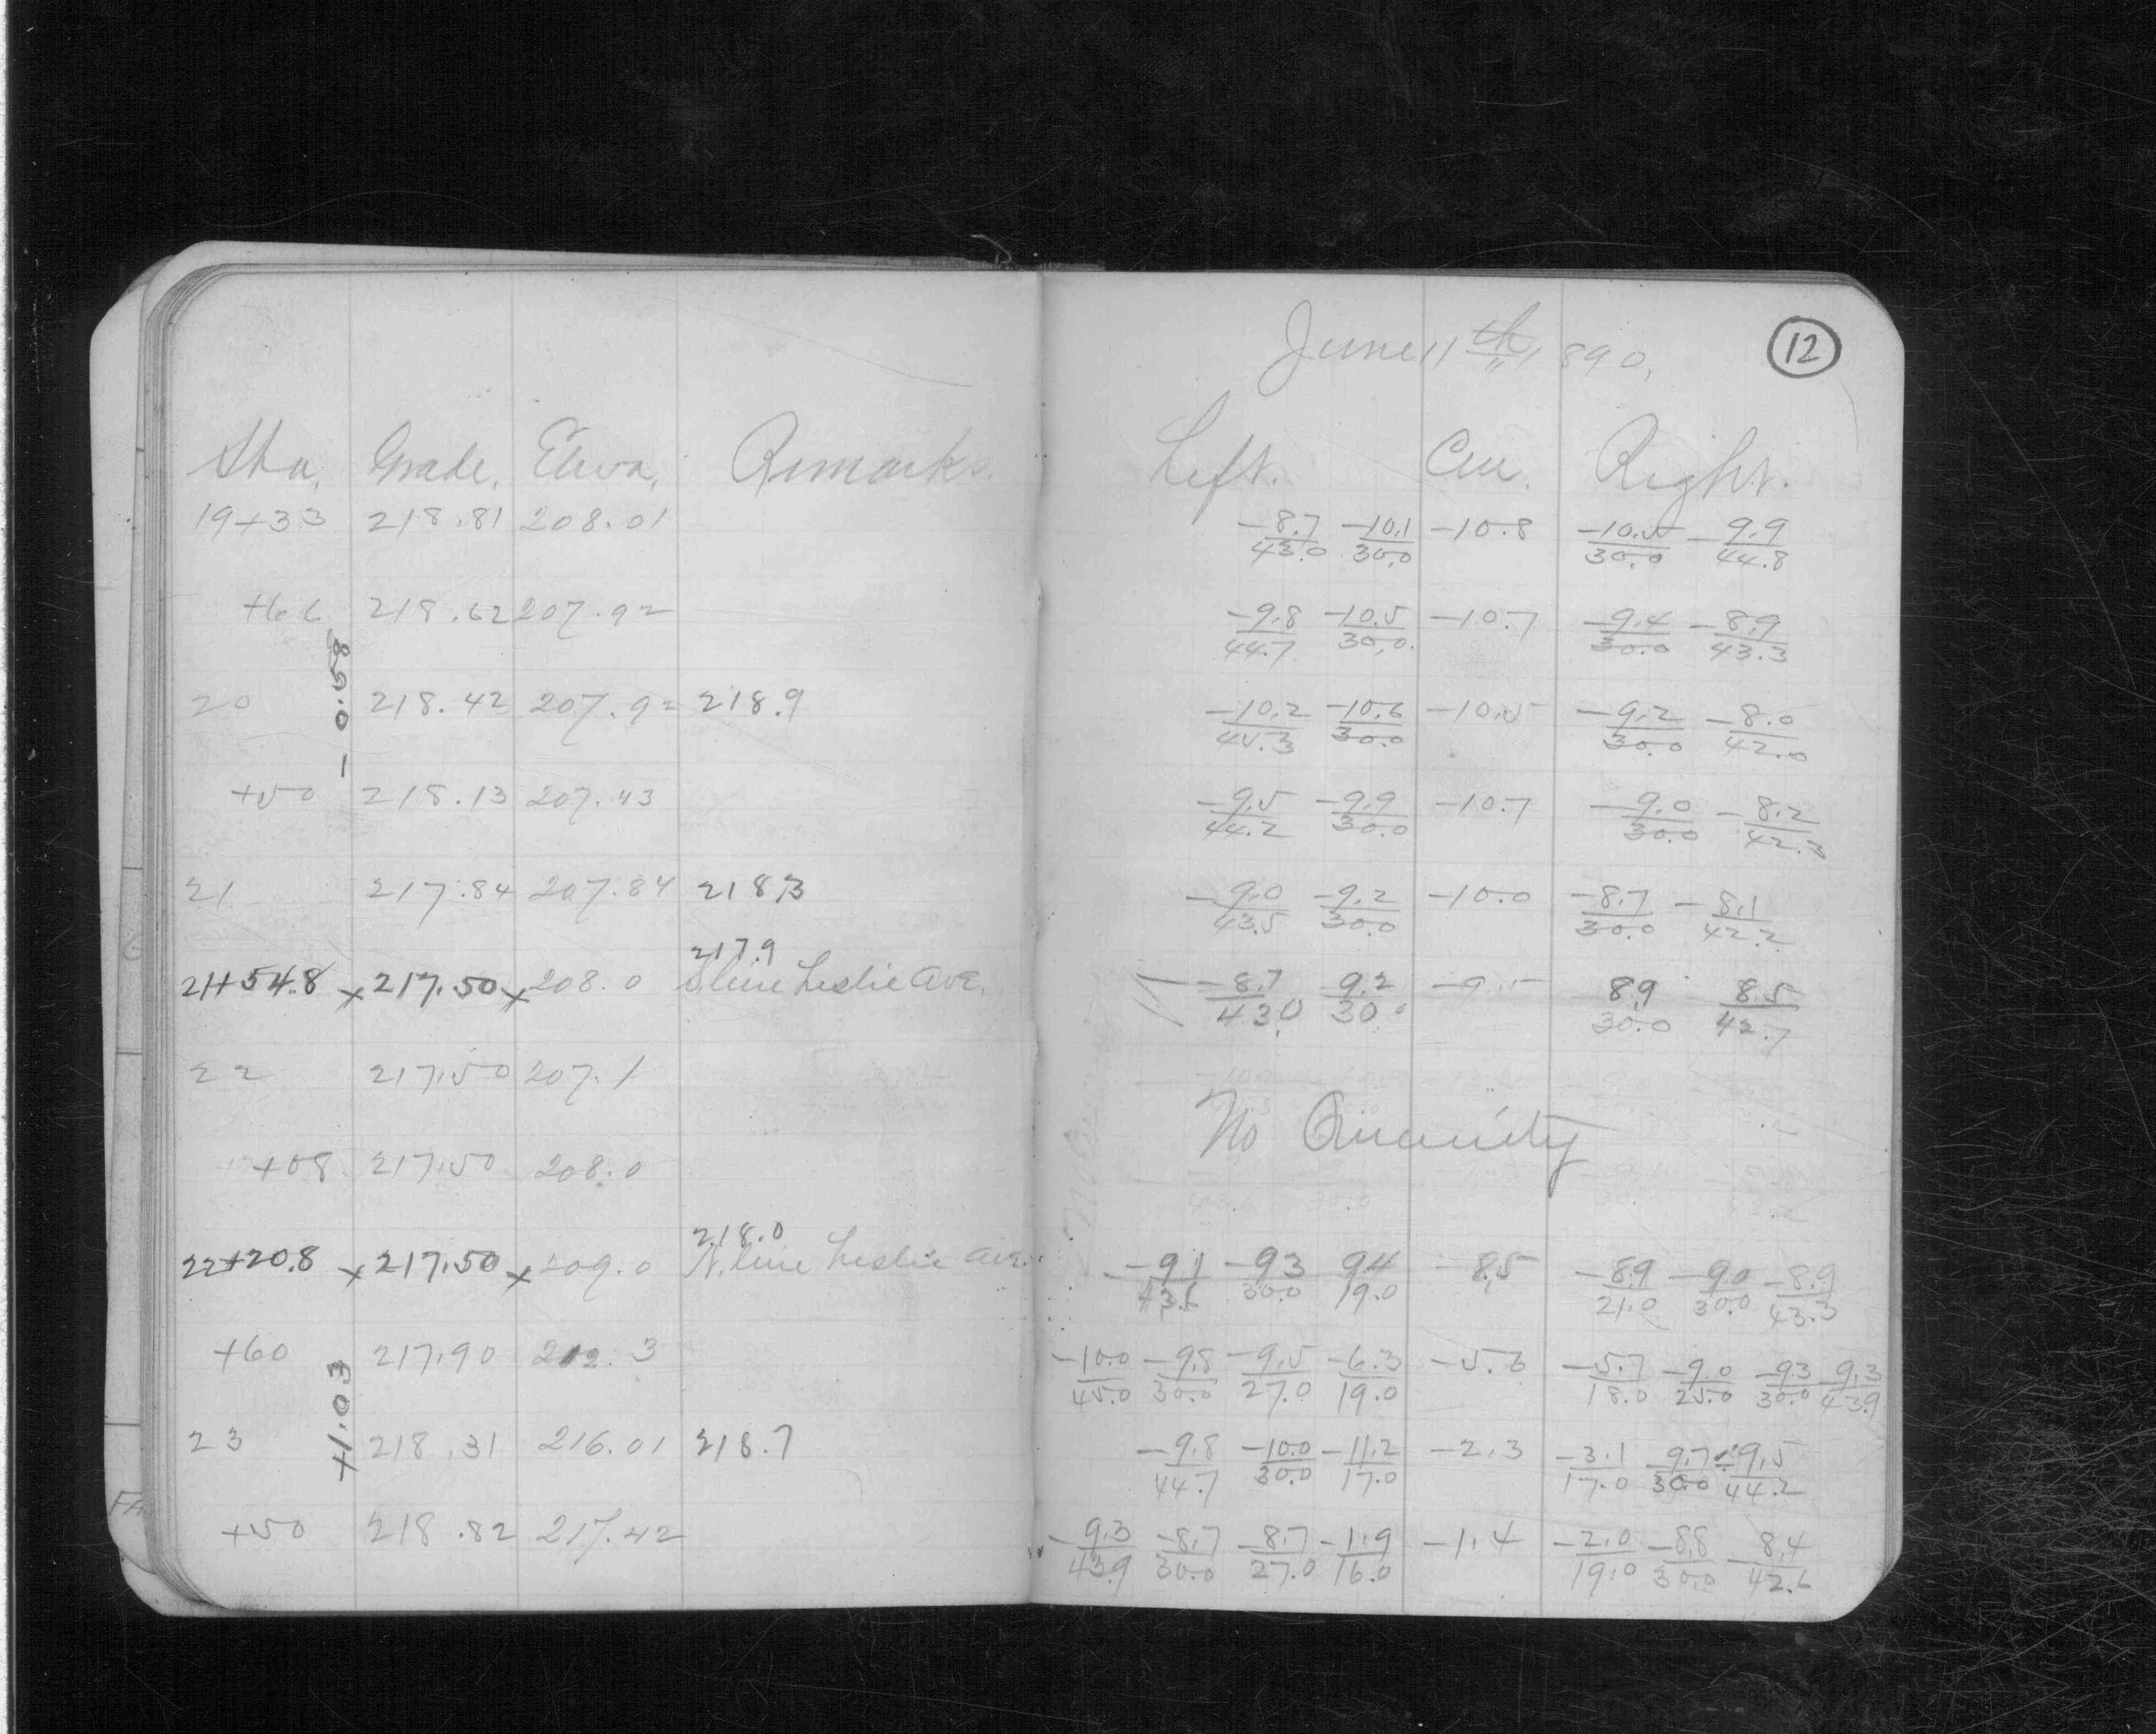 June 11th 1890.
12
Sta. Grade. Eleva. Remarks. Left. Cen. Right.
19+33 218.81 208.01 -8.7/43.0 -10.1/30.0 -10.8 -10.5/30.0 -9.9/44.8
+66 218.62 207.92 -9.8/44.7 -10.5/30.0 -10.7 -9.4/30.0 -8.9/43.3
-0.58
20 218.42 207.92 218.9 -10.2/45.3 -10.6/30.0 -10.5 -9.2/30.0 -8.0/42.0
+50 218.13 207.43 -9.5/44.2 -9.9/30.0 -10.7 -9.0/30.0 -8.2/42.3
21 217.84 207.84 218.3 -9.0/43.5 -9.2/30.0 -10.0 -8.7/30.0 -8.1/42.2
217.9
21+54.8 x 217.50 x 208.0 S. line Leslie Ave. -8.7/43.0 9.2/30.0 -9.5 8.9/30.0 8.5/42.7
22 217.50 207.1
No Quantity
+08 217.50 208.0
218.0
22+20.8 x 217.50 x 209.0 N. line Leslie Ave. -9.1/43.6 -9.3/30.0 9.4/19.0 -8.5 -8.9/21.0 -9.0/30.0 -8.9/43.3
+60 217.90 212.3 -10.0/45.0 -9.8/30.0 -9.5/27.0 -6.3/19.0 -5.6 -5.7/18.0 -9.0/25.0 -9.3/30.0 -9.3/43.9
+1.03
23 218.31 216.01 218.7 -9.8/44.7 -10.0/30.0 -11.2/17.0 -2.3 -3.1/17.0 -9.7/30.0 -9.5/44.2
+50 218.82 217.42 -9.3/43.9 -8.7/30.0 -8.7/27.0 -1.9/16.0 -1.4 -2.0/19.0 -8.8/30.0 -8.4/42.6